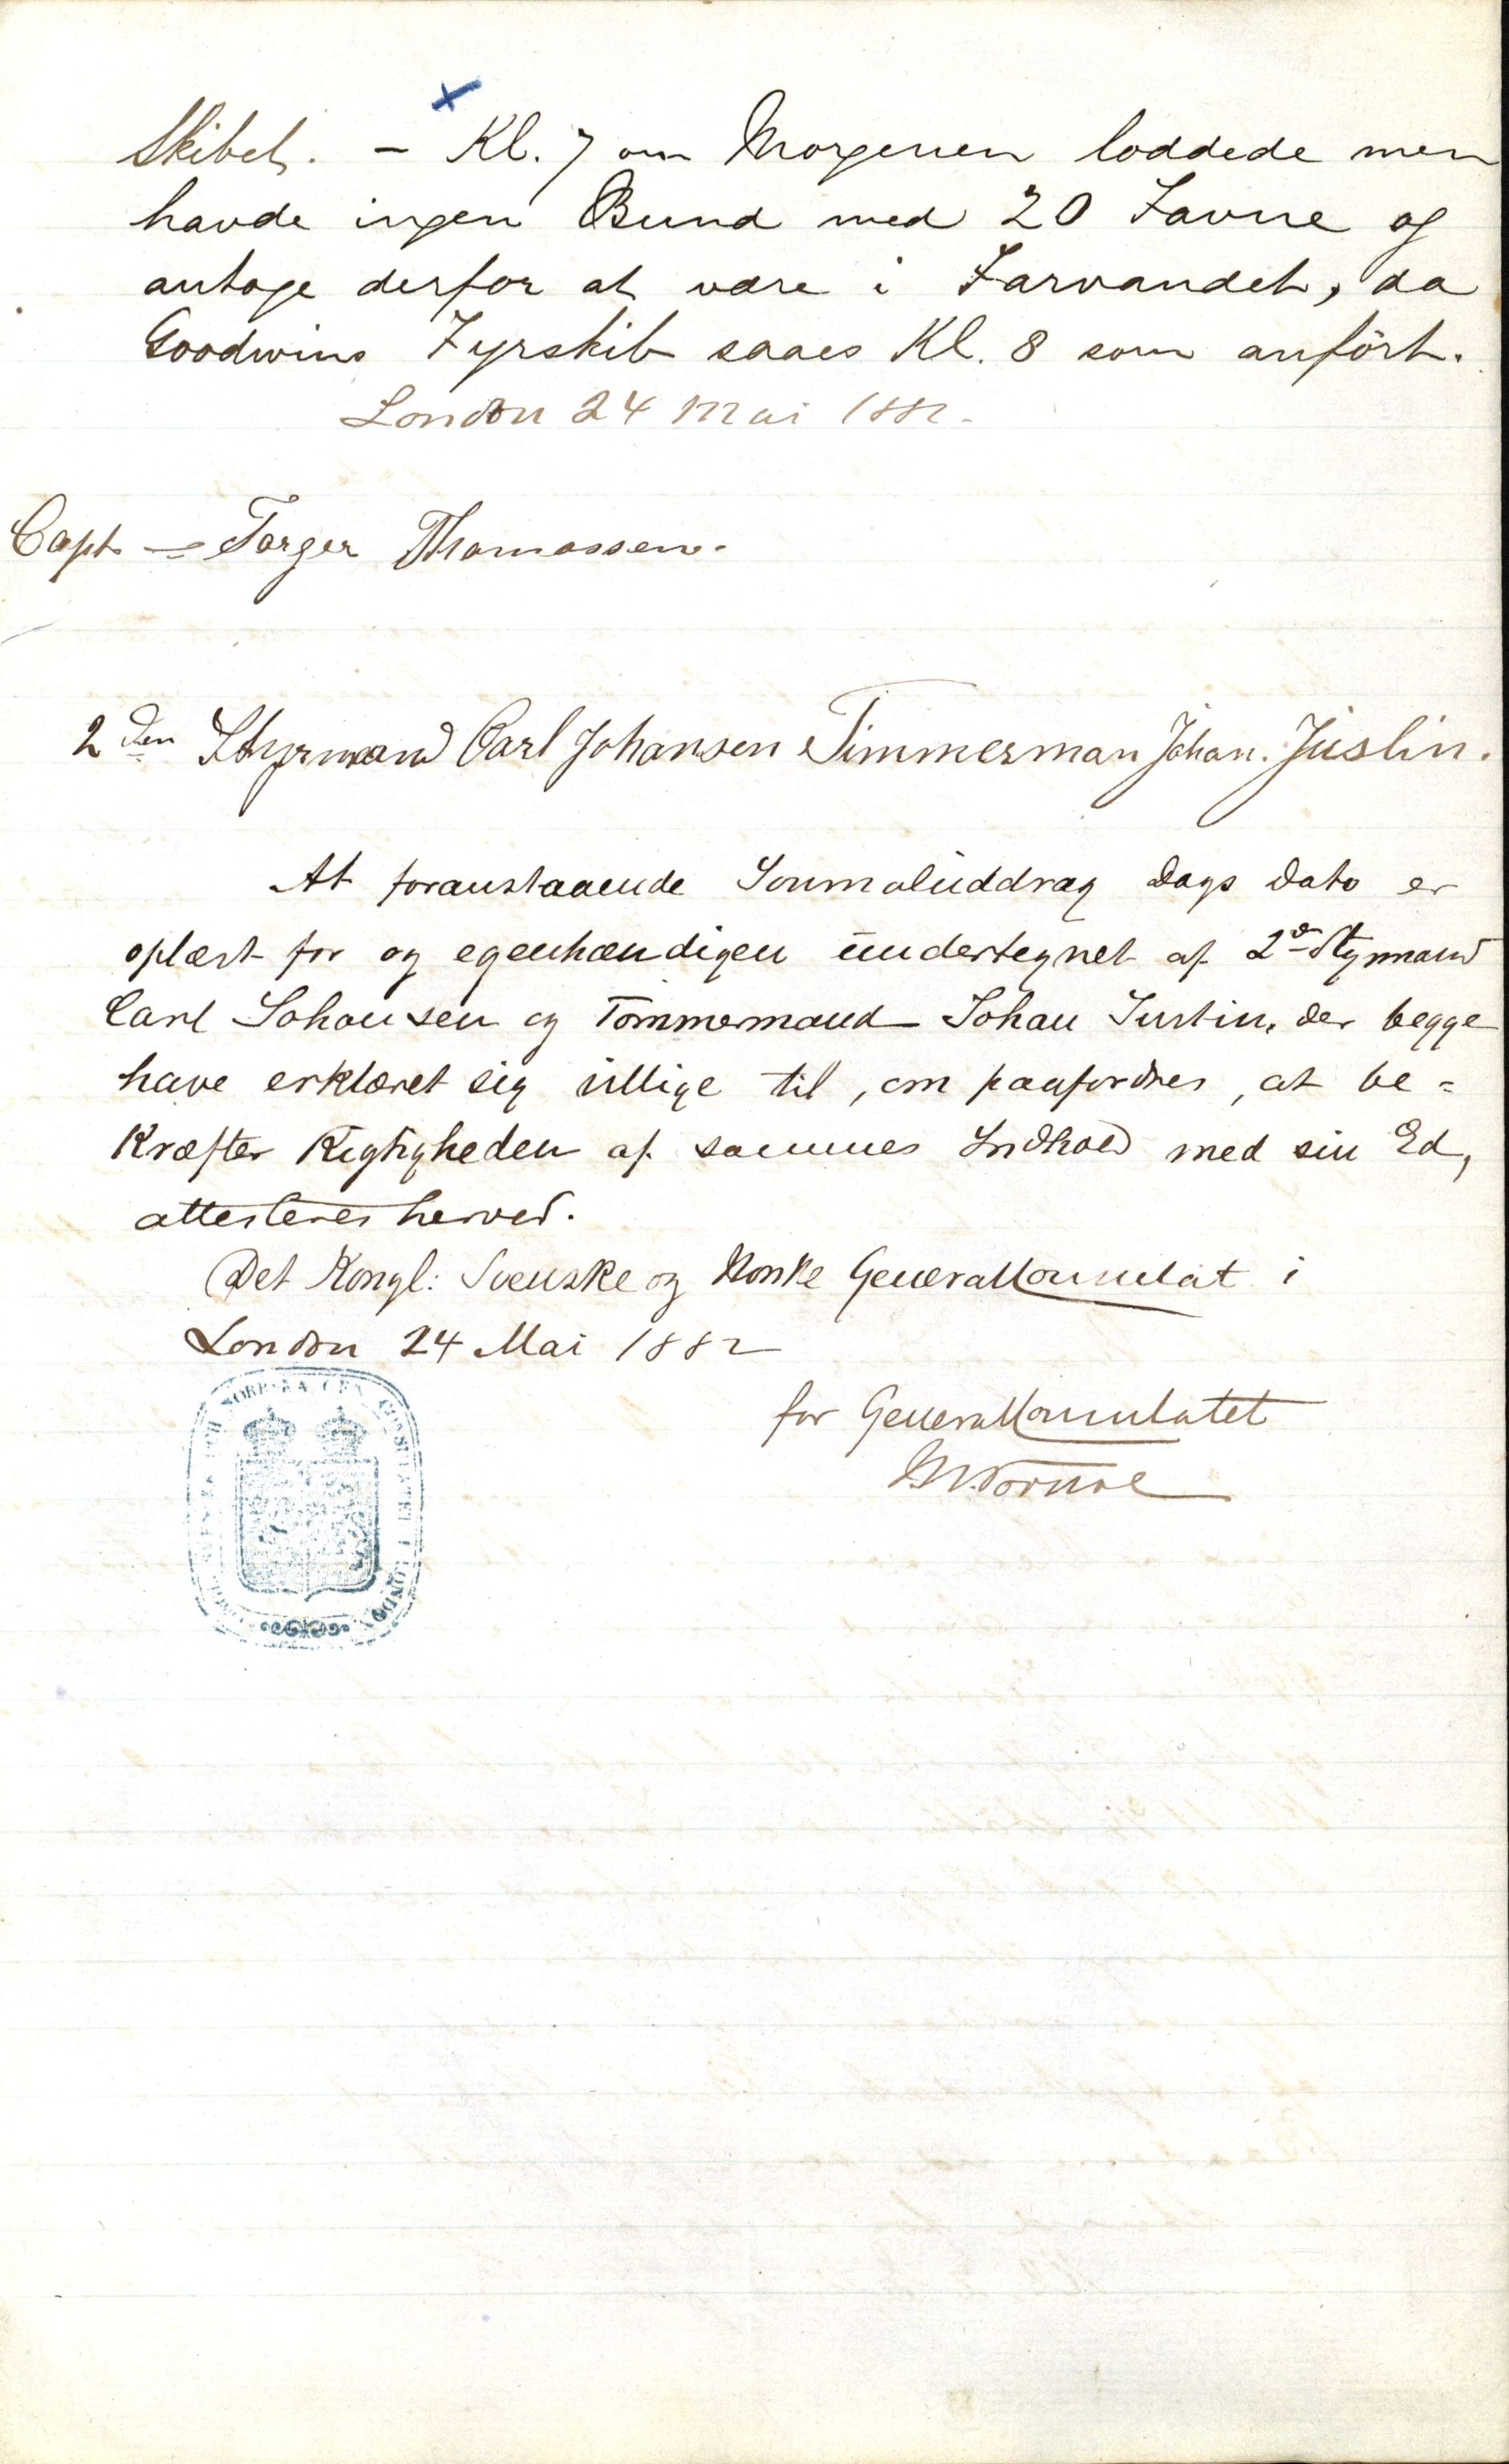 Skibet. – Kl. 7 om Morgenen loddede men
havde ingen Bund med 20 Favne og
antoge derfor at være i Farvandet, da
Goodwins Fyrskib saaes Kl. 8 som anfört.
London 24 Mai 1882.
Capt Torger Thomassen.
2den Styrmand Carl Johansen Timmerman Johan. Juslin.
At foranstaaende Journaluddrag Dags Dato er
oplæst for og egenhændigen undertegnet af 2d Stymand
Carl Johansen og Tømmermand Johan Justin, der begge
have erklæret sig villige til, om paafordres, at be=
kræfter Rigtigheden af sammes Indhold med sin Ed,
attesteres herved.
Det Kongl: Svenske og Norske Generalkonsulat i
London 24 Mai 1882
for Generalkonsulatet
NORRSKA GEN. CONSULATET I LONDON